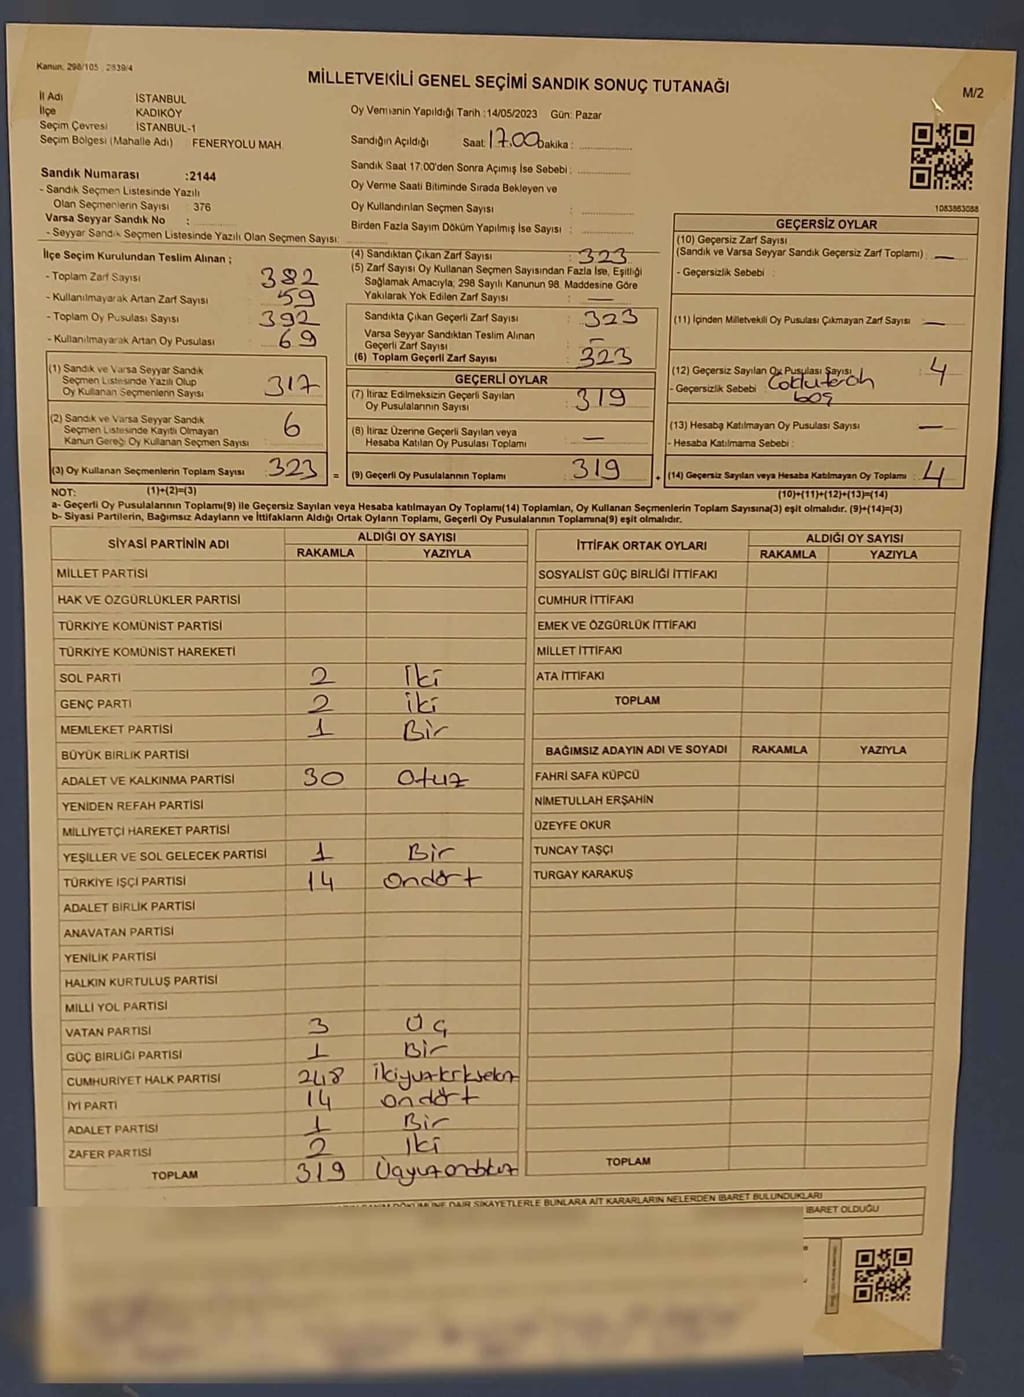 Kanun. 298/105 , 2839/4
MİLLETVEKİLİ GENEL SEÇİMİ SANDIK SONUÇ TUTANAĞI
M/2
İl Adı İSTANBUL
İlçe KADIKÖY
Seçim Çevresi İSTANBUL-1
Seçim Bölgesi (Mahalle Adı) FENERYOLU MAH.
Oy Vermenin Yapıldığı Tarih :14/05/2023 Gün: Pazar
Sandığın Açıldığı Saat: 17.00 Dakika :
Sandık Saat 17:00'den Sonra Açımış İse Sebebi :
Oy Verme Saati Bitiminde Sırada Bekleyen ve
Oy Kullandırılan Seçmen Sayısı :
Birden Fazla Sayım Döküm Yapılmış İse Sayısı :
1083863088
Sandık Numarası :2144
- Sandık Seçmen Listesinde Yazılı
Olan Seçmenlerin Sayısı : 376
Varsa Seyyar Sandık No :
- Seyyar Sandık Seçmen Listesinde Yazılı Olan Seçmen Sayısı:
İlçe Seçim Kurulundan Teslim Alınan ;
- Toplam Zarf Sayısı : 382
- Kullanılmayarak Artan Zarf Sayısı : 59
- Toplam Oy Pusulası Sayısı : 392
- Kullanılmayarak Artan Oy Pusulası : 69
(1) Sandık ve Varsa Seyyar Sandık
Seçmen Listesinde Yazılı Olup
Oy Kullanan Seçmenlerin Sayısı : 317
(2) Sandık ve Varsa Seyyar Sandık
Seçmen Listesinde Kayıtlı Olmayan
Kanun Gereği Oy Kullanan Seçmen Sayısı : 6
(3) Oy Kullanan Seçmenlerin Toplam Sayısı : 323 =
(4) Sandıktan Çıkan Zarf Sayısı : 323
(5) Zarf Sayısı Oy Kullanan Seçmen Sayısından Fazla İse, Eşitliği
Sağlamak Amacıyla, 298 Sayılı Kanunun 98. Maddesine Göre
Yakılarak Yok Edilen Zarf Sayısı : —
Sandıkta Çıkan Geçerli Zarf Sayısı : 323
Varsa Seyyar Sandıktan Teslim Alınan
Geçerli Zarf Sayısı : —
(6) Toplam Geçerli Zarf Sayısı : 323
GEÇERLİ OYLAR
(7) İtiraz Edilmeksizin Geçerli Sayılan
Oy Pusulalarının Sayısı : 319
(8) İtiraz Üzerine Geçerli Sayılan veya
Hesaba Katılan Oy Pusulası Toplamı : —
(9) Geçerli Oy Pusulalarının Toplamı : 319 +
GEÇERSİZ OYLAR
(10) Geçersiz Zarf Sayısı
(Sandık ve Varsa Seyyar Sandık Geçersiz Zarf Toplamı) : —
- Geçersizlik Sebebi :
(11) İçinden Milletvekili Oy Pusulası Çıkmayan Zarf Sayısı : —
(12) Geçersiz Sayılan Oy Pusulası Sayısı : 4
- Geçersizlik Sebebi : Çoklu tercih
boş
(13) Hesaba Katılmayan Oy Pusulası Sayısı : —
- Hesaba Katılmama Sebebi :
(14) Geçersiz Sayılan veya Hesaba Katılmayan Oy Toplamı : 4
NOT: (1)+(2)=(3) (10)+(11)+(12)+(13)=(14)
a- Geçerli Oy Pusulalarının Toplamı(9) ile Geçersiz Sayılan veya Hesaba katılmayan Oy Toplamı(14) Toplamları, Oy Kullanan Seçmenlerin Toplam Sayısına(3) eşit olmalıdır. (9)+(14)=(3)
b- Siyasi Partilerin, Bağımsız Adayların ve İttifakların Aldığı Ortak Oyların Toplamı, Geçerli Oy Pusulalarının Toplamına(9) eşit olmalıdır.
SİYASİ PARTİNİN ADI ALDIĞI OY SAYISI
RAKAMLA YAZIYLA
MİLLET PARTİSİ
HAK VE ÖZGÜRLÜKLER PARTİSİ
TÜRKİYE KOMÜNİST PARTİSİ
TÜRKİYE KOMÜNİST HAREKETİ
SOL PARTİ 2 İki
GENÇ PARTİ 2 iki
MEMLEKET PARTİSİ 1 Bir
BÜYÜK BİRLİK PARTİSİ
ADALET VE KALKINMA PARTİSİ 30 Otuz
YENİDEN REFAH PARTİSİ
MİLLİYETÇİ HAREKET PARTİSİ
YEŞİLLER VE SOL GELECEK PARTİSİ 1 Bir
TÜRKİYE İŞÇİ PARTİSİ 14 ondört
ADALET BİRLİK PARTİSİ
ANAVATAN PARTİSİ
YENİLİK PARTİSİ
HALKIN KURTULUŞ PARTİSİ
MİLLİ YOL PARTİSİ
VATAN PARTİSİ 3 Üç
GÜÇ BİRLİĞİ PARTİSİ 1 Bir
CUMHURİYET HALK PARTİSİ 248 İkiyüzkırksekiz
İYİ PARTİ 14 ondört
ADALET PARTİSİ 1 Bir
ZAFER PARTİSİ 2 İki
TOPLAM 319 Üçyüzondokuz
İTTİFAK ORTAK OYLARI ALDIĞI OY SAYISI
RAKAMLA YAZIYLA
SOSYALİST GÜÇ BİRLİĞİ İTTİFAKI
CUMHUR İTTİFAKI
EMEK VE ÖZGÜRLÜK İTTİFAKI
MİLLET İTTİFAKI
ATA İTTİFAKI
TOPLAM
BAĞIMSIZ ADAYIN ADI VE SOYADI RAKAMLA YAZIYLA
FAHRİ SAFA KÜPCÜ
NİMETULLAH ERŞAHİN
ÜZEYFE OKUR
TUNCAY TAŞÇI
TURGAY KARAKUŞ
TOPLAM
DÖKÜMÜNE DAİR ŞİKAYETLERLE BUNLARA AİT KARARLARIN NELERDEN İBARET BULUNDUKLARI
İBARET OLDUĞU